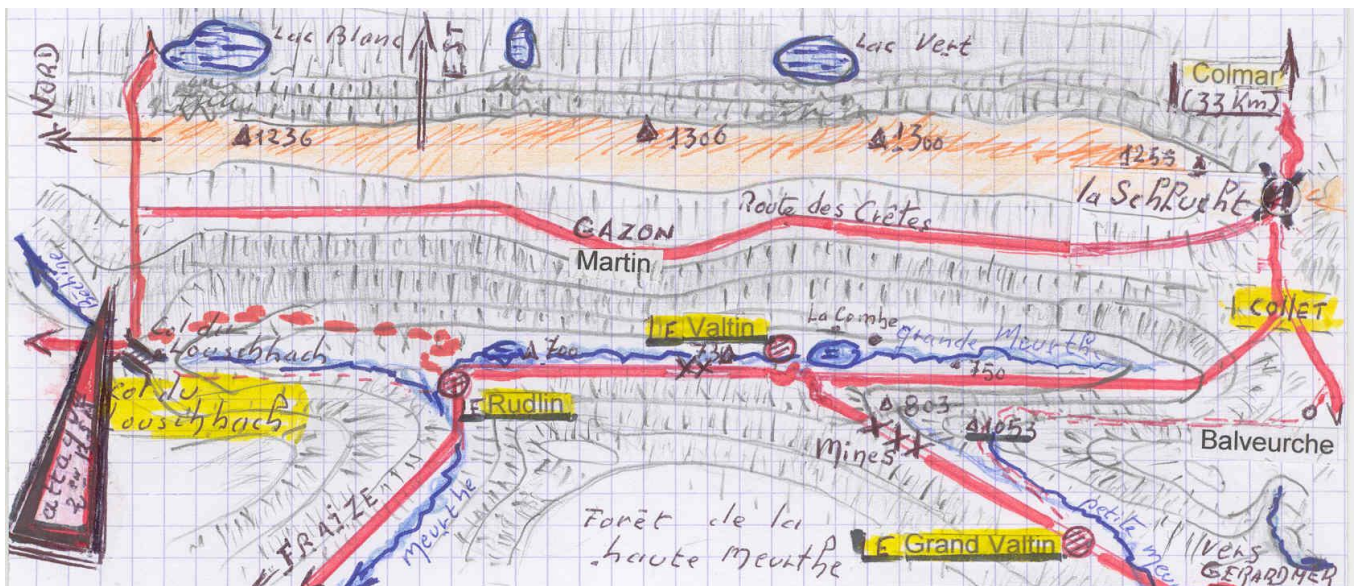 NORD
Lac Blanc
EST
Lac Vert
Colmar
(33 Km)
1236
1306
1300
1255
la Schlucht
Route des Crêtes
GAZON
Martin
Béhine
COLLET
Col du
Louschbach
LE Valtin
La Combe
grande Meurthe
700
730
750
Col du
Louschbach
LE Rudlin
803
1053
Balveurche
Mines
attaque
FRAIZE
Meurthe
Forêt de la
haute Meurthe
LE Grand Valtin
petite meu
vers
GERARDMER